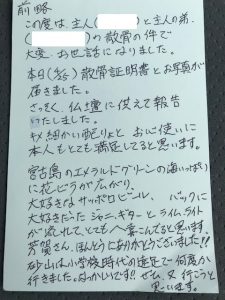 前略
この度は、主人(　　)と主人の弟、
(　　)の散骨の件で
大変、お世話になりました。
本日(3/5)散骨証明書とお写真が
届きました。
さっそく、仏壇に供えて報告
いたしました。
きめ細かい配りょと お心使いに
本人もとても満足してると思います。
宮古島のエメラルドグリーンの海いっぱい
に花ビラが広がり、
大好きな サッポロビール、 バックに
大好きだった ジャニ、ギター と ライム、ライト
が流れて、とても 喜こんてると思います、
芳賀さん、ほんとうにありがとうございました!!
砂山は小学校時代の遠足で 何度か
行きました。なつかしいです!! ぜひ、又 行こうと
思います。